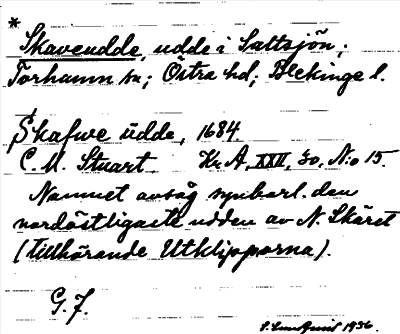 *
Skaveudde, udde i Saltsjön;
Torhamn sn; Östra hd; Blekinge l.
Skafwe üdde, 1684
C. M. Stuart Kr A, XXII, 30, N:o 15.
Namnet avsåg synbarl. den
nordöstligaste udden av N. Skäret
(tillhörande Utklipporna).
G. F.
1936.